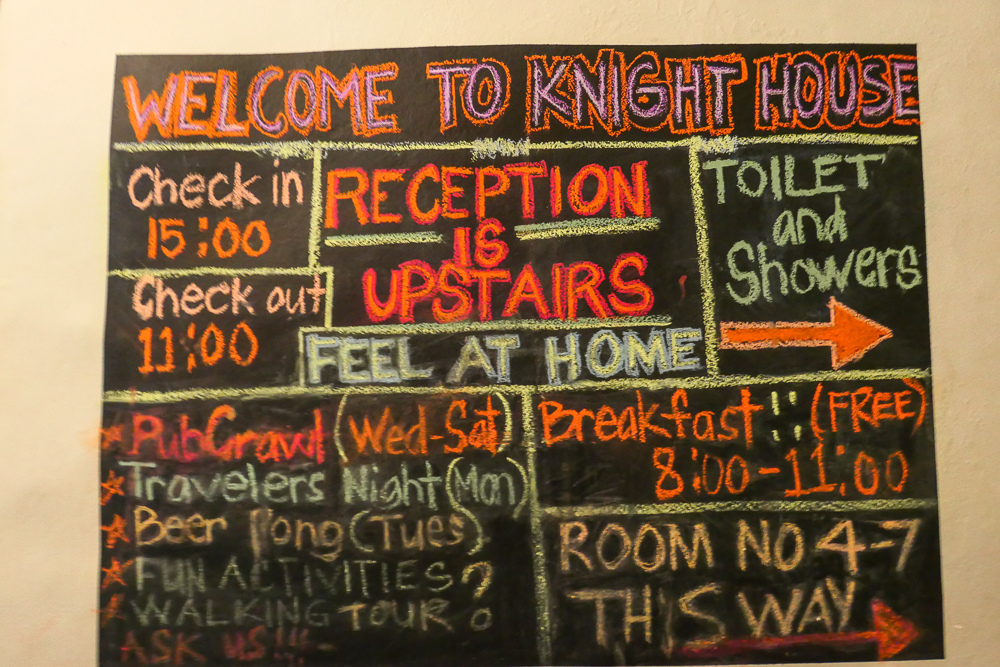 WELCOME TO KNIGHT HOUSE
Check in
15:00
Check out
11:00
RECEPTION
IS
UPSTAIRS
FEEL AT HOME
TOILET
and
Showers
PubCrawl (Wed-Sat)
Travelers Night (Mon)
Beer Pong (Tues)
FUN ACTIVITIES?
WALKING TOUR
ASK US!!!
Breakfast!! (FREE)
8:00-11:00
ROOM NO 4-7
THIS WAY